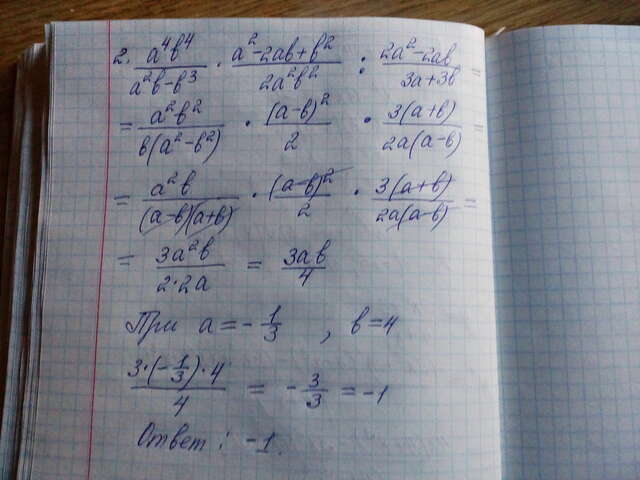 2. a⁴b⁴/(a²b-b³) · (a²-2ab+b²)/(2a²b²) : (2a²-2ab)/(3a+3b) =
= a²b²/(b(a²-b²)) · (a-b)²/2 · 3(a+b)/(2a(a-b)) =
= a²b/((a-b)(a+b)) · (a-b)²/2 · 3(a+b)/(2a(a-b)) =
= 3a²b/(2·2a) = 3ab/4
При a = -1/3 , b = 4
3·(-1/3)·4/4 = -3/3 = -1
Ответ: -1.